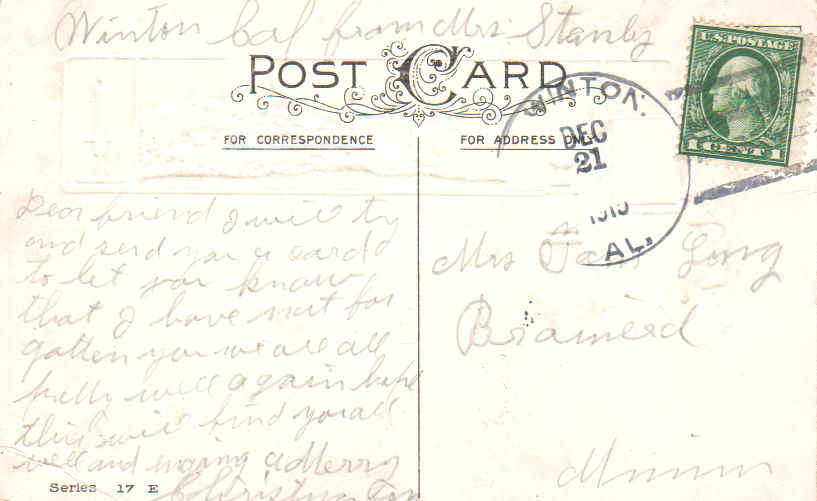 Winton Cal from Mrs Stanly
POST CARD
U.S. POSTAGE
1 CENT 1
WINTON.
DEC
21
AL.
FOR CORRESPONDENCE
FOR ADDRESS ONLY
Dear friend I will try
and send you a card
to let you know
that I have not for
gotten you we are all
pretty well again hope
this will find you all
well and enjoying a Merry
Christmas
Mrs Long
Brainerd
Minn
Series 17 E